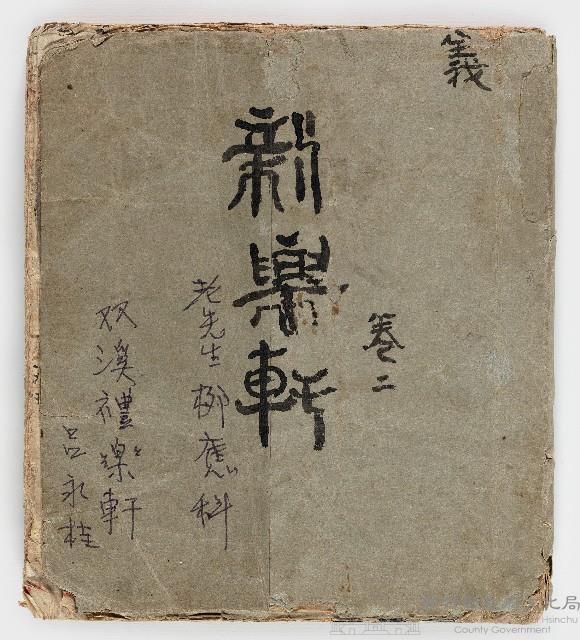 義
卷二
新樂軒
老先生 柳應科
双溪禮樂軒
呂永桂
化局
Hsinchu
County Government